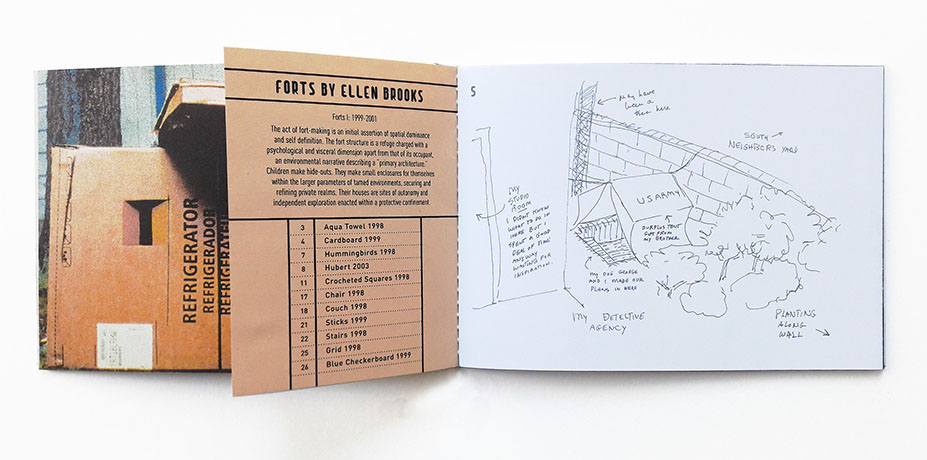 REFRIGERATOR
REFRIGERADOR
FORTS BY ELLEN BROOKS
Forts I: 1999-2001
The act of fort-making is an initial assertion of spatial dominance
and self definition. The fort structure is a refuge charged with a
psychological and visceral dimension apart from that of its occupant,
an environmental narrative describing a "primary architecture."
Children make hide-outs. They make small enclosures for themselves
within the larger parameters of tamed environments, securing and
refining private realms. Their houses are sites of autonomy and
independent exploration enacted within a protective confinement.
3 Aqua Towel 1998
4 Cardboard 1999
7 Hummingbirds 1998
8 Hubert 2003
11 Crocheted Squares 1998
17 Chair 1998
18 Couch 1998
21 Sticks 1999
22 Stairs 1998
25 Grid 1998
26 Blue Checkerboard 1999
5
may have
been a
tree here
SOUTH
NEIGHBORS YARD
MY
STUDIO
ROOM
I DIDN'T KNOW
WHAT TO DO IN
HERE BUT I
SPENT A GOOD
DEAL OF TIME
ANYWAY
WAITING FOR
INSPIRATION.
U.S ARMY
SURPLUS TENT
GOT FROM
MY BROTHER
MY DOG GEORGE
AND I MADE OUR
PLANS IN HERE
MY DETECTIVE
AGENCY
PLANTING
ALONG
WALL